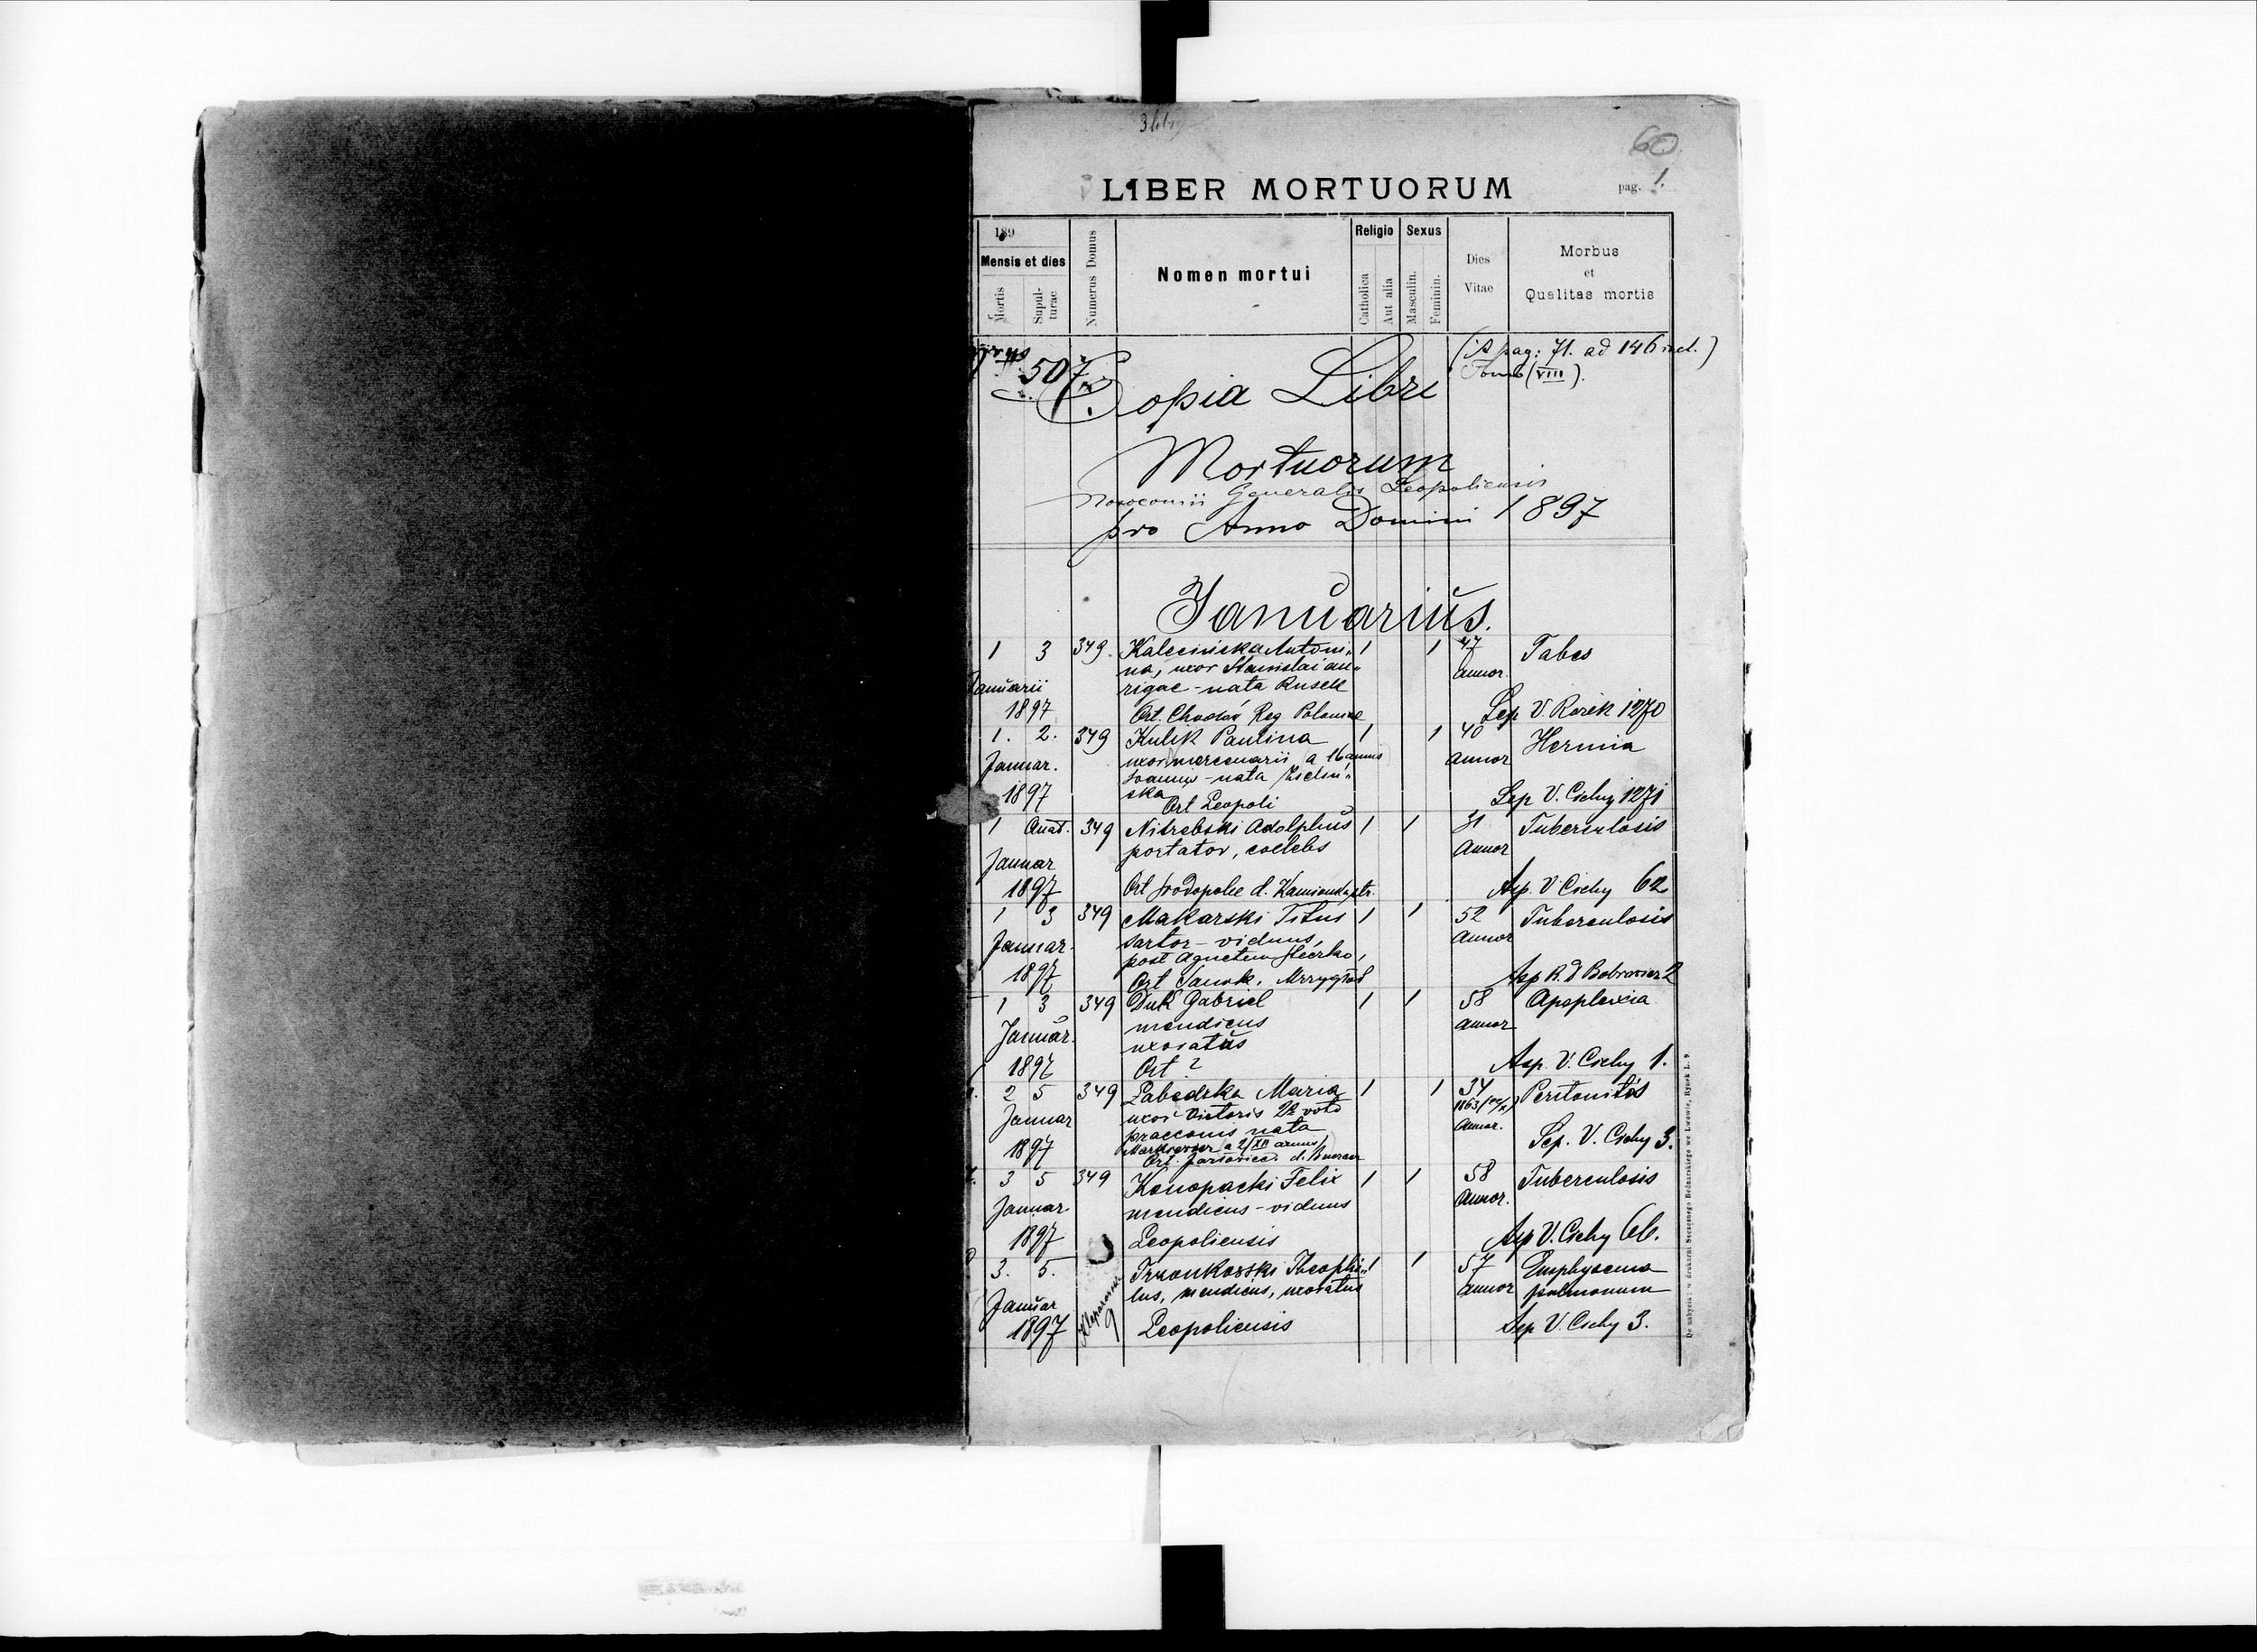 60.
LIBER MORTUORUM
pag. 1.
189
Mensis et dies
Mortis
Sepul-
turae
Numerus Domus
Nomen mortui
Religio
Catholica
Aut alia
Sexus
Masculin.
Feminin.
Dies
Vitae
Morbus
et
Qualitas mortis
507
(A pag: 71. ad 146 incl.)
Tomo (VIII).
Copia Libri
Mortuorum
Nosocomii Generalis Leopoliensis
pro Anno Domini 1897
Januarius.
1 3 349. Antoni„ 1 1 47 Tabes
na, uxor Stanislai au„ annor.
Januarii rigae - nata Rusek
1897 Ort. Reg Sep V. 1270
1. 2. 349 Kulik Paulina 1 1 40 Hernia
Januar. uxor mercenarii a 16 annis annor
Joannis - nata
1897 ska
Ort Leopoli Sep V. Cichy 1271
1 Anat. 349 Nitrebski Adolphus 1 1 31 Tuberculosis
portator, coelebs Annor
Januar
1897 Ort d. Kamionka str. Asp. V Cichy 62
1 3 349 Makarski Titus 1 1 52 Tuberculosis
Januar. sartor - viduus, annor
post Agnetem
1897 Ort Sanok, Mrzygłod Asp R. d 2
1 3 349 Duk Gabriel 1 1 58 Apoplexia
Januar. mendicus annor
uxoratus
1897 Ort ? Asp. V. Cichy 1.
2 5 349 Maria 1 1 34 Peritonitis
Januar uxor Victoris 2º voto 1863 annor.
praeconis nata
1897 a 2/XII annis Sep. V. Cichy 3.
Ort.
3 5 349 Konopacki Felix 1 1 58 Tuberculosis
Januar mendicus - viduus annor.
1897 Leopoliensis Asp V. Cichy 66.
3. 5. Theophi„ 1 1 57 Emphysema
Januar lus, mendicus, uxoratus annor pulmonum
1897 9 Leopoliensis Asp V. Cichy 3.
Do nabycia: w drukarni Szczęsnego Bednarskiego we Lwowie, Rynek L. 9.